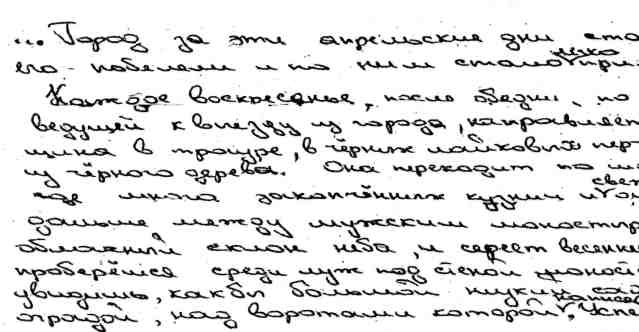 ... Город за эти апрельские дни ста
его побелели и по ним стало легко при
Каждое воскресенье, после обедни, по
ведущей к выезду из города, направляет
щина в трауре, в чёрных лайковых пер
из чёрного дерева. Она переходит по ш
где много закопчённых кузниц и
свеж
дальше, между мужским монастыр
облачный склон неба, и сереет весенне
проберёшься среди луж под стеной моной
увидишь, как бы большой низкий сад
оградой, над воротами которой Успе